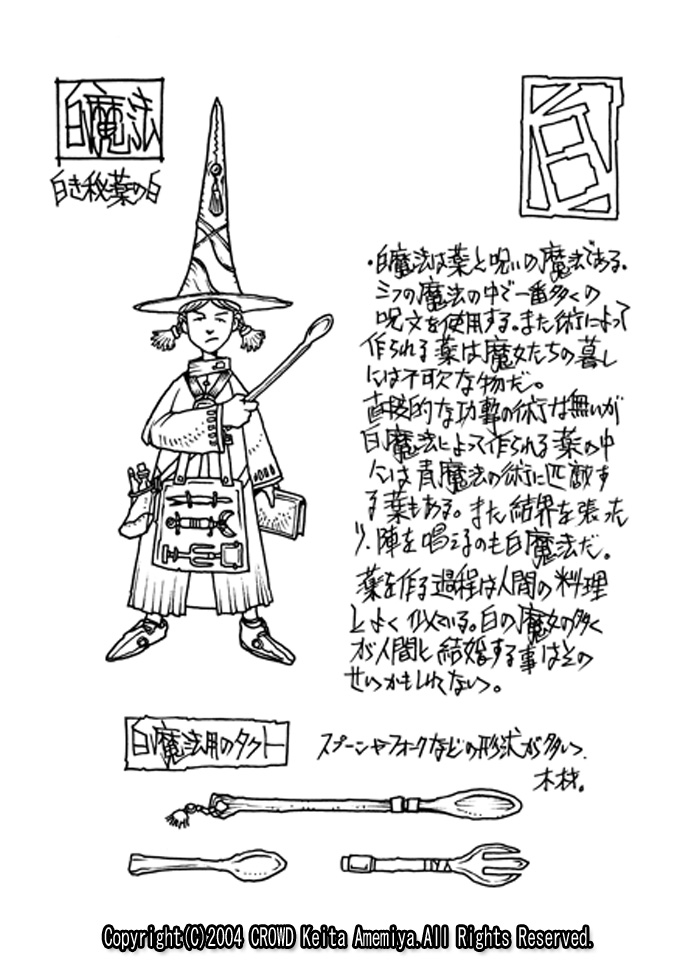 白魔法
白き秘薬の白
白
・白魔法は薬と呪いの魔法である。
三つの魔法の中で一番多くの
呪文を使用する。また術によって
作られる薬は魔女たちの暮し
には不可欠な物だ。
直接的な功撃の術は無いが
白魔法によって作られる薬の中
には青魔法の術に匹敵す
る薬もある。また結界を張った
り、陣を唱えるのも白魔法だ。
薬を作る過程は人間の料理
とよく似ている。白の魔女の多く
が人間と結婚する事はその
せいかもしれない。
白魔法用のタクト
スプーンやフォークなどの形状が多い。
木材。
Copyright(C)2004 CROWD Keita Amemiya.All Rights Reserved.